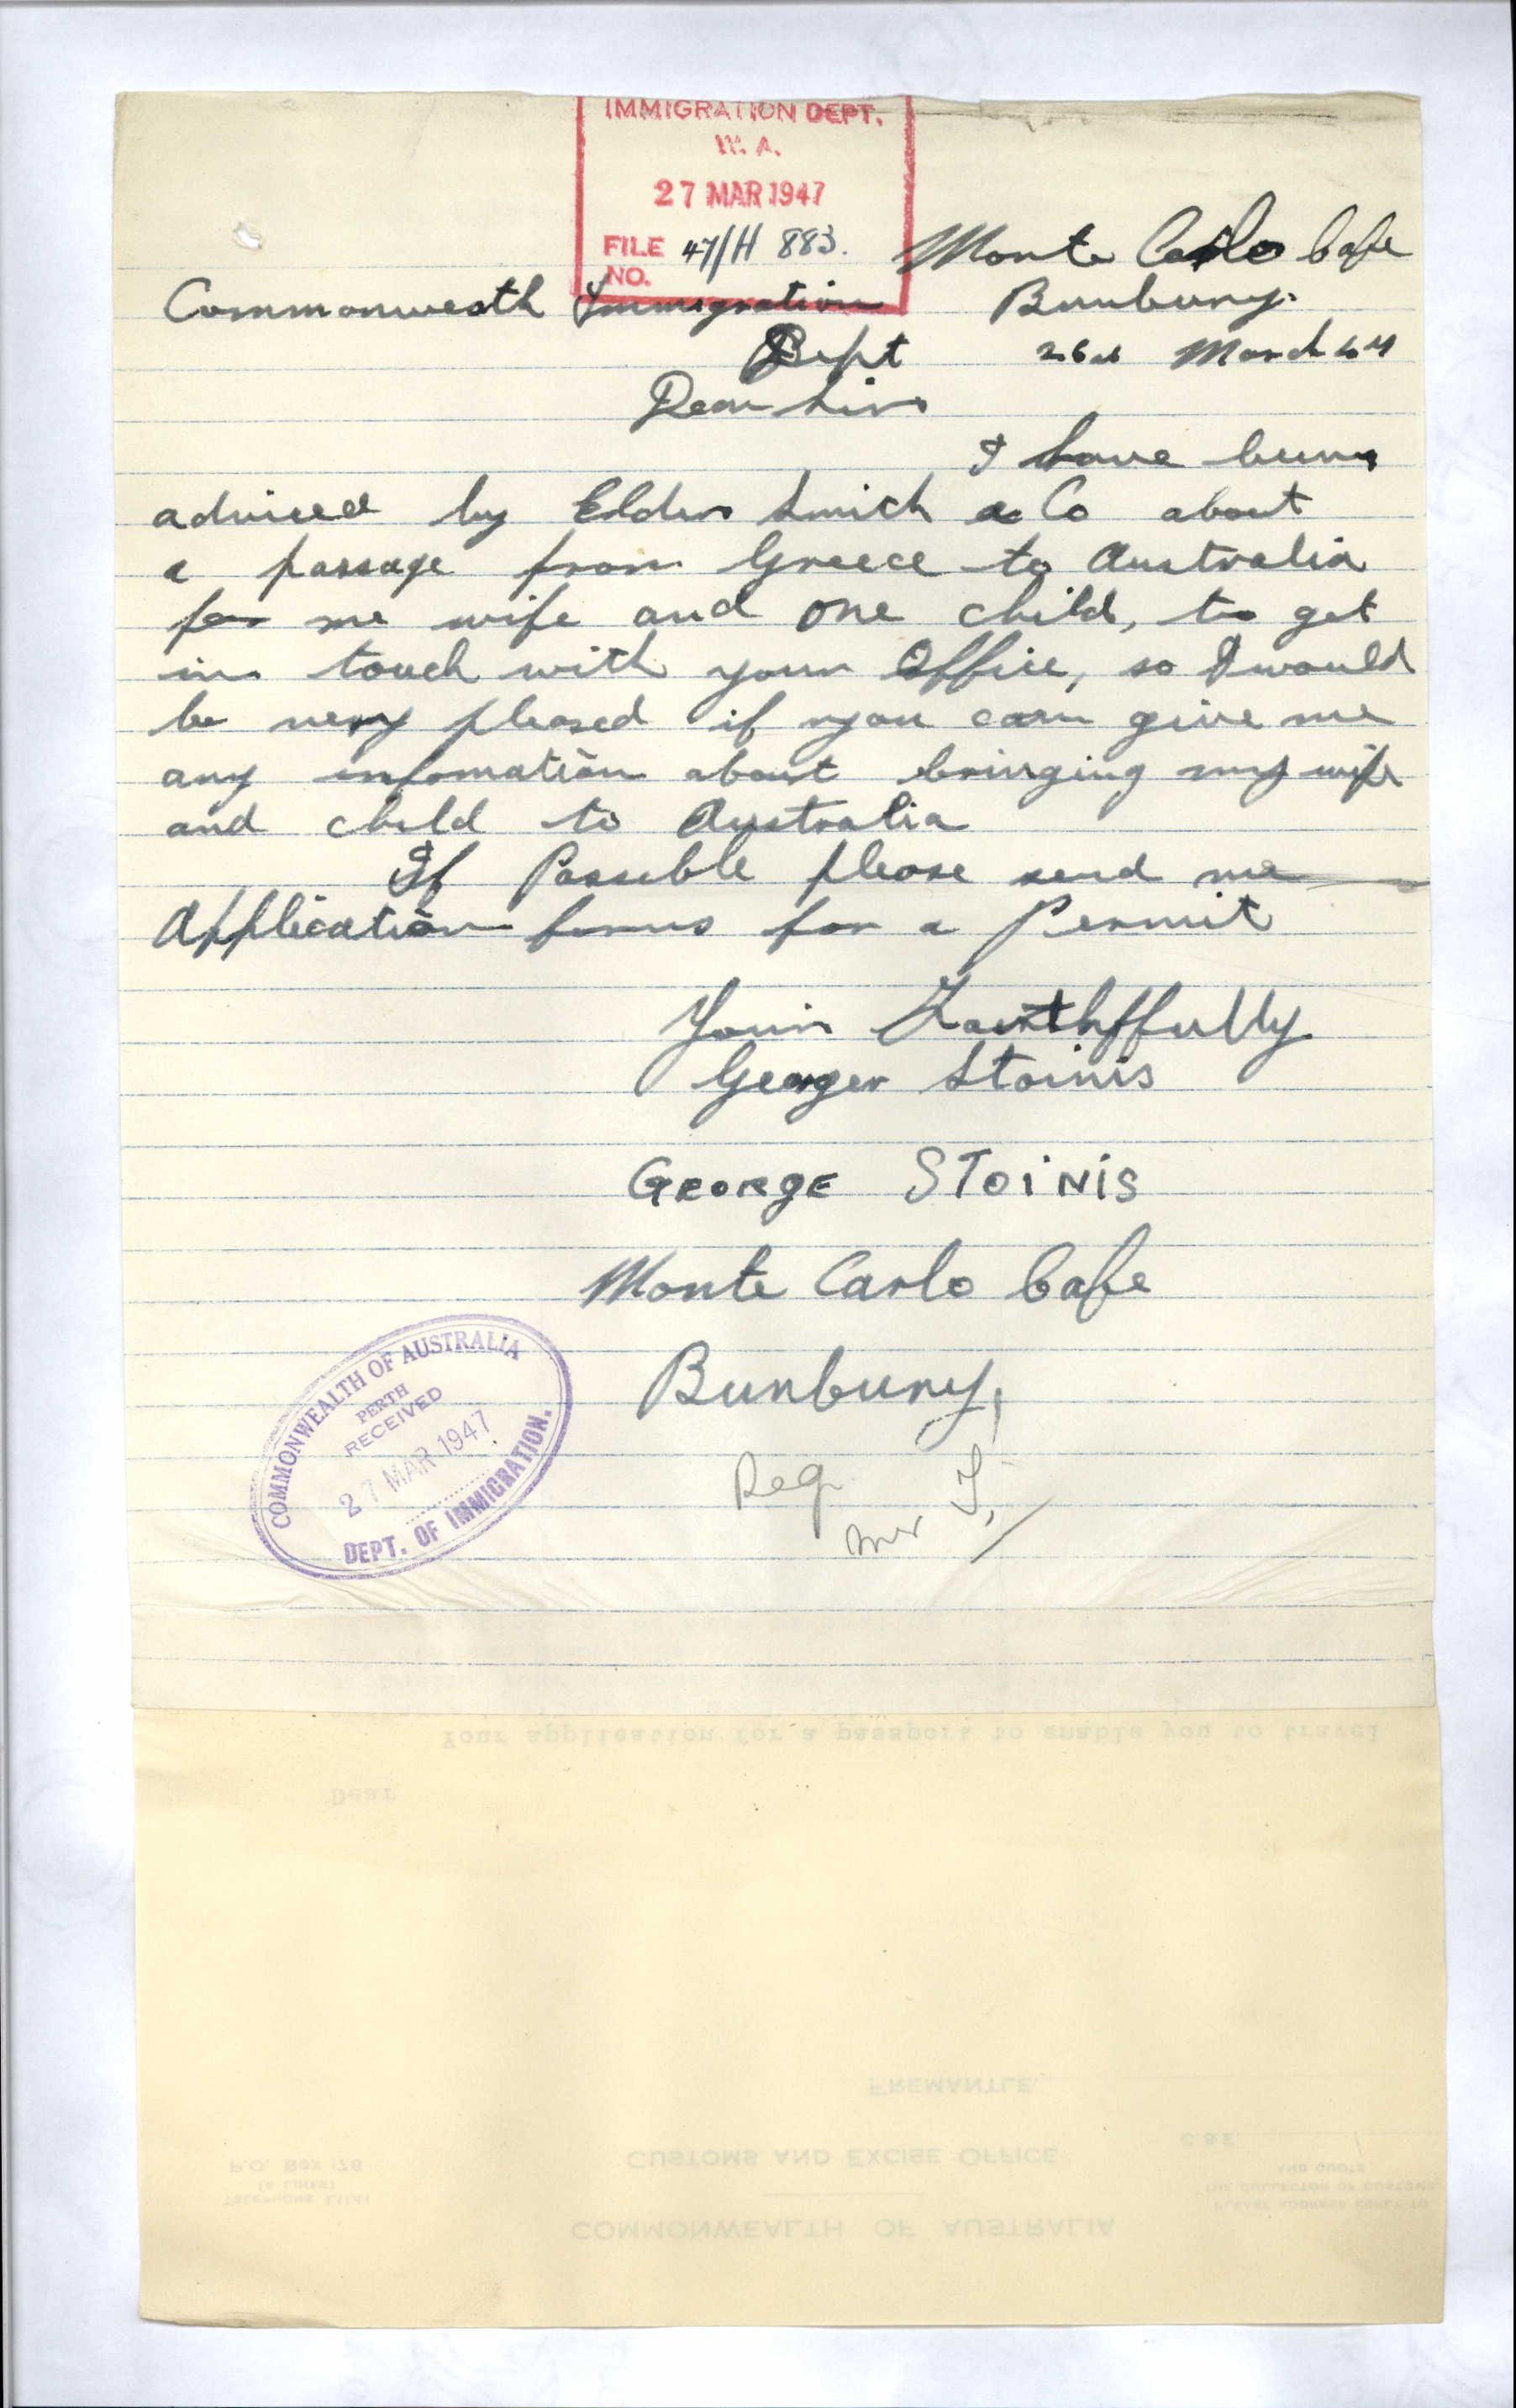 IMMIGRATION DEPT.
W. A.
27 MAR 1947
FILE NO. 47/H 883.
Monte Carlo Cafe
Commonweath Immigration
Bunbury.
Dept
26th March 47
Dear Sirs
I have been
adviced by Elder Smith & Co about
a passage from Greece to Australia
for me wife and one child, to get
in touch with your Office, so I would
be very pleased if you can give me
any infomation about bringing my wife
and child to Australia
If Possible please send me
Application forms for a Permit
Yours Faithffully
George Stoinis
GEORGE STOINIS
Monte Carlo Cafe
Bunbury,
COMMONWEALTH OF AUSTRALIA
PERTH
RECEIVED
27 MAR 1947
DEPT. OF IMMIGRATION.
Reg
Your application for a passport to enable you to travel
Dear
FREMANTLE.
C. & E.
CUSTOMS AND EXCISE OFFICE
P.O. Box 176
AND QUOTE
THE COLLECTOR OF CUSTOMS
PLEASE ADDRESS REPLY TO
COMMONWEALTH OF AUSTRALIA